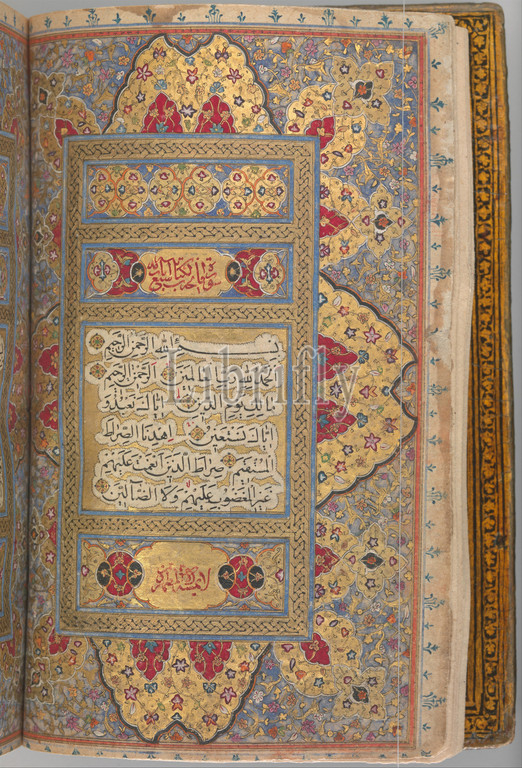 سورة فاتحة الكتاب سبع
بسم الله الرحمن الرحيم
الحمد لله رب العالمين الرحمن الرحيم
مالك يوم الدين اياك نعبد و
اياك نستعين اهدنا الصراط
المستقيم صراط الذين انعمت عليهم
غير المغضوب عليهم ولا الضالين
Librifly